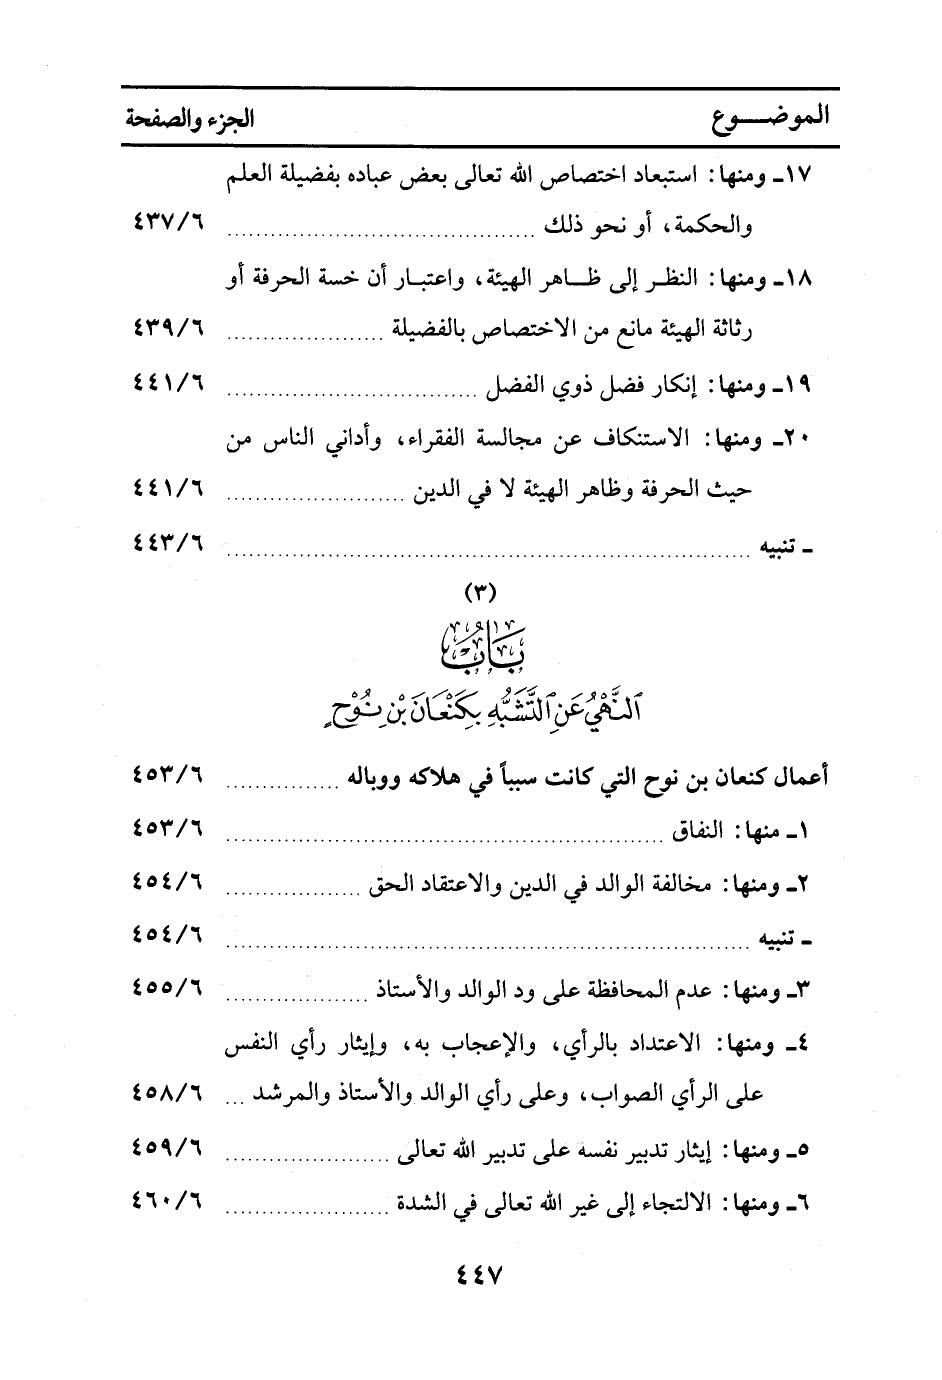 الموضـــوع الجزء والصفحة
١٧ـ ومنها: استبعاد اختصاص الله تعالى بعض عباده بفضيلة العلم
والحكمة، أو نحو ذلك ........................................ ٤٣٧/٦
١٨ـ ومنها: النظر إلى ظاهر الهيئة، واعتبار أن خسة الحرفة أو
رثاثة الهيئة مانع من الاختصاص بالفضيلة ...................... ٤٣٩/٦
١٩ـ ومنها: إنكار فضل ذوي الفضل ................................... ٤٤١/٦
٢٠ـ ومنها: الاستنكاف عن مجالسة الفقراء، وأداني الناس من
حيث الحرفة وظاهر الهيئة لا في الدين ......................... ٤٤١/٦
ـ تنبيه ......................................................................... ٤٤٣/٦
(٣)
بَابُ
النَّهْيُ عَنِ التَّشَبُّهِ بِكَنْعَانَ بْنِ نُوْحٍ
أعمال كنعان بن نوح التي كانت سبباً في هلاكه ووباله ................ ٤٥٣/٦
١ـ منها: النفاق ............................................................. ٤٥٣/٦
٢ـ ومنها: مخالفة الوالد في الدين والاعتقاد الحق ................... ٤٥٤/٦
ـ تنبيه ......................................................................... ٤٥٤/٦
٣ـ ومنها: عدم المحافظة على ود الوالد والأستاذ .................... ٤٥٥/٦
٤ـ ومنها: الاعتداد بالرأي، والإعجاب به، وإيثار رأي النفس
على الرأي الصواب، وعلى رأي الوالد والأستاذ والمرشد ... ٤٥٨/٦
٥ـ ومنها: إيثار تدبير نفسه على تدبير الله تعالى ....................... ٤٥٩/٦
٦ـ ومنها: الالتجاء إلى غير الله تعالى في الشدة ....................... ٤٦٠/٦
٤٤٧